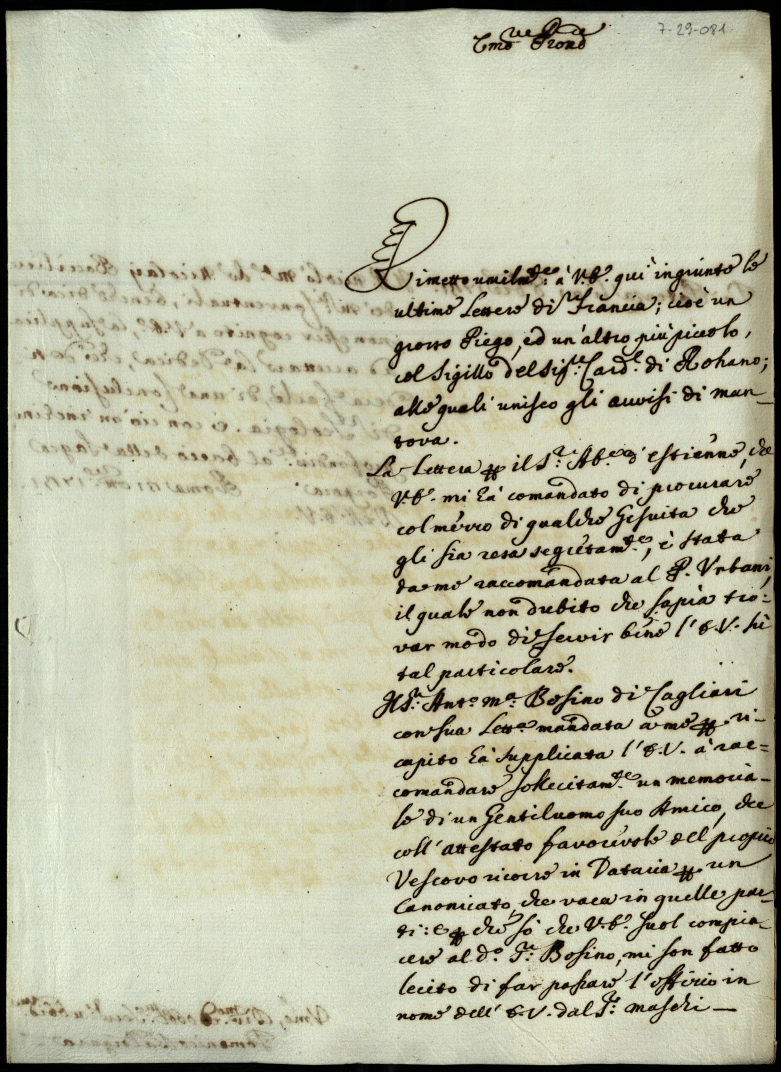 7-29-081
Em̃o e Rev̄e Prone
Rimetto umilmte. à V.E. quì ingiunte le
ultime Lettere di Francia; cioè un
grosso Piego, ed un'altro più piccolo,
col Sigillo del Sigr. Cardl. di Rohano;
alle quali unisco gli avvisi di Man-
tova.
La Lettera p il Sr. Abe. d'estienne, che
V.E. mi hà comandato di procurare
col mezzo di qualche Gesuita che
gli sia resa segretamte., è stata
da me raccomandata al P. Urbani,
il quale non dubito che sapia tro-
var modo di servir bene l'E.V. sù
tal particolare.
Il Sr. Anto. Ma. Bosino di Cagliari
con sua Letta. mandata à me p ri-
capito hà supplicata l'E.V. à rac-
comandare sollecitamte. un memoria-
le di un Gentiluomo suo Amico, che
coll'attestato favorevole del proprio
Vescovo ricorre in Dataria p un
Canonicato, che vaca in quelle par-
ti: e p che sò che V.E. suol compia-
cere al do. Sr. Bosino, mi son fatto
lecito di far passare l'offizio in
nome dell'E.V. dal Sr. Maschi —